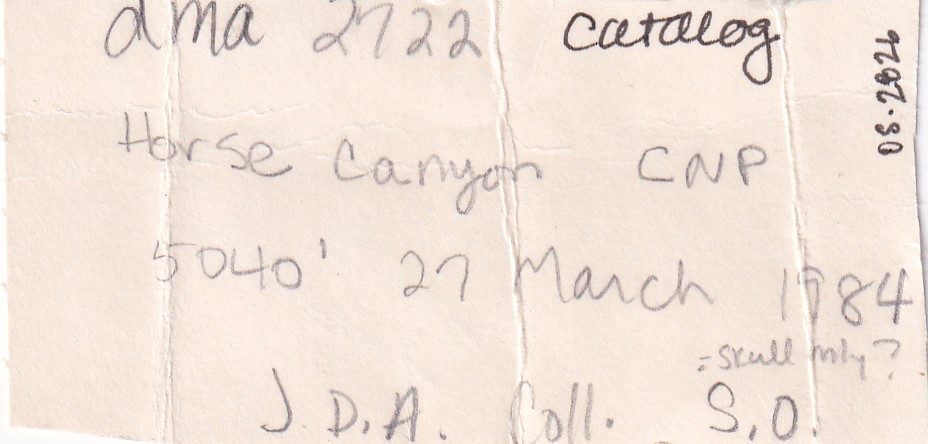 dma 2722 catalog
Horse Canyon CNP
5040' 27 March 1984
= skull only?
J.D.A. Coll. S.O.